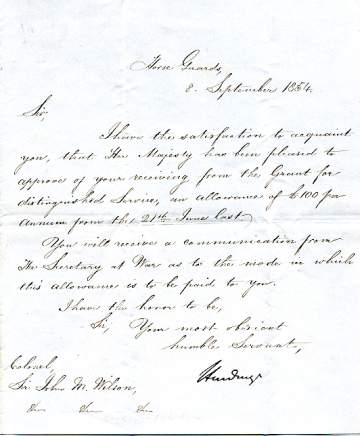 Horse Guards,
8. September 1854.
Sir,
I have the satisfaction to acquaint
you, that Her Majesty has been pleased to
approve of your receiving from the Grant for
distinguished Service, an allowance of £100 per
Annum from the 21st June last.
You will receive a communication from
The Secretary at War as to the mode in which
this allowance is to be paid to you.
I have the honor to be,
Sir, Your most obedient
humble Servant,
Hardinge
Colonel,
Sir John M. Wilson,